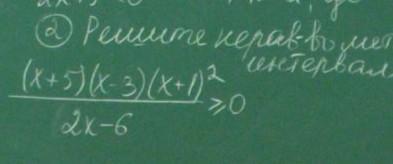 ② Решите нерав-во мет
интервал
(x+5)(x-3)(x+1)²
2x-6 ≥0